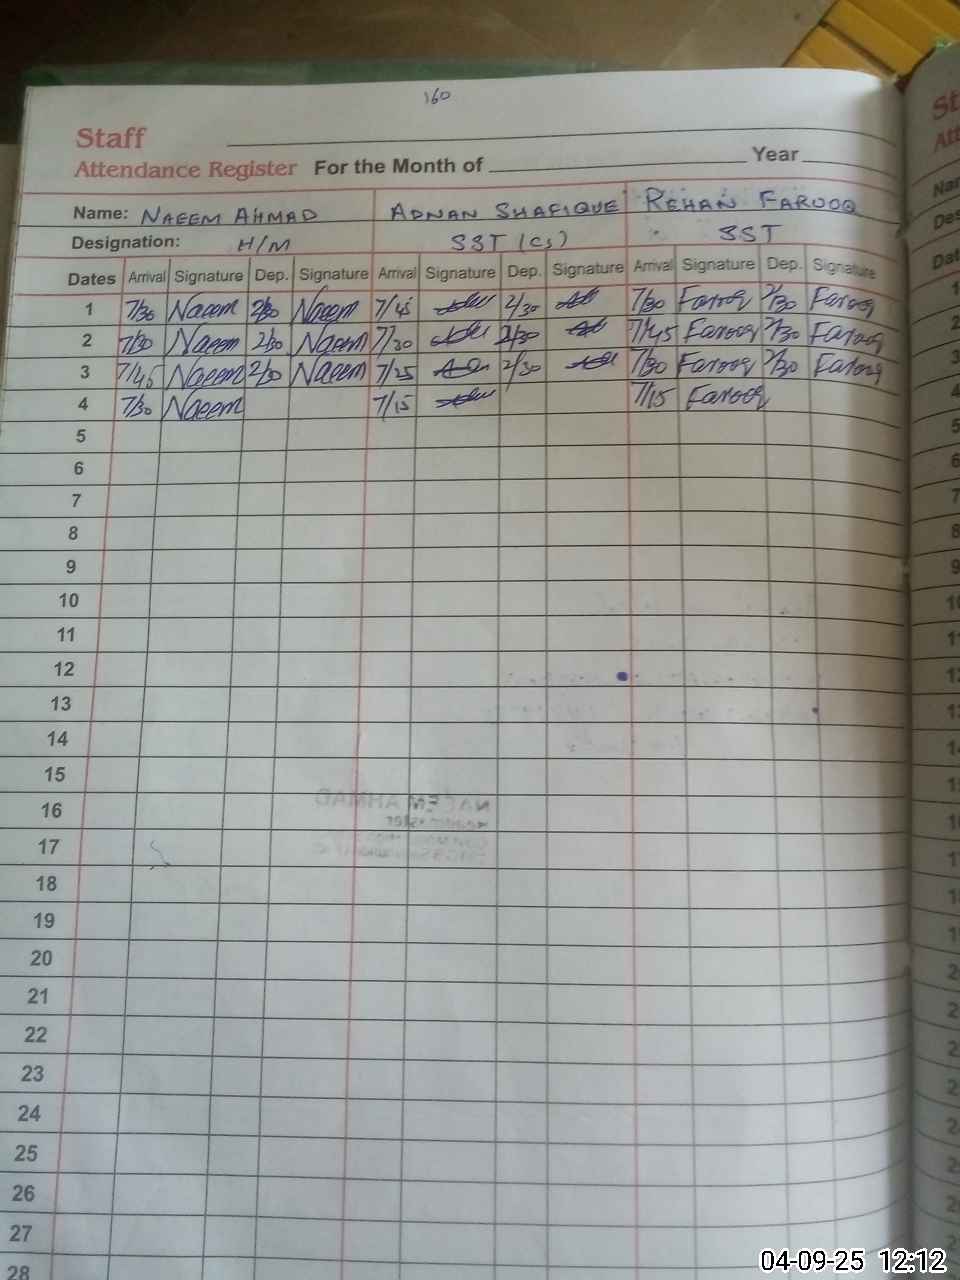 160
Staff
Attendance Register For the Month of Year
Name: NAEEM AHMAD ADNAN SHAFIQUE REHAN FAROOQ
Designation: H/M SST (CS) SST
Dates Arrival Signature Dep. Signature Arrival Signature Dep. Signature Arrival Signature Dep. Signature
1 7/30 Naeem 2/30 Naeem 7/45 2/30 7/30 Farooq 2/30 Farooq
2 7/30 Naeem 2/30 Naeem 7/30 2/30 7/45 Farooq 2/30 Farooq
3 7/45 Naeem 2/30 Naeem 7/25 2/30 7/30 Farooq 2/30 Farooq
4 7/30 Naeem 7/15 7/15 Farooq
5
6
7
8
9
10
11
12
13
14
15
16
17
18
19
20
21
22
23
24
25
26
27
28
NAEEM AHMAD
04-09-25 12:12